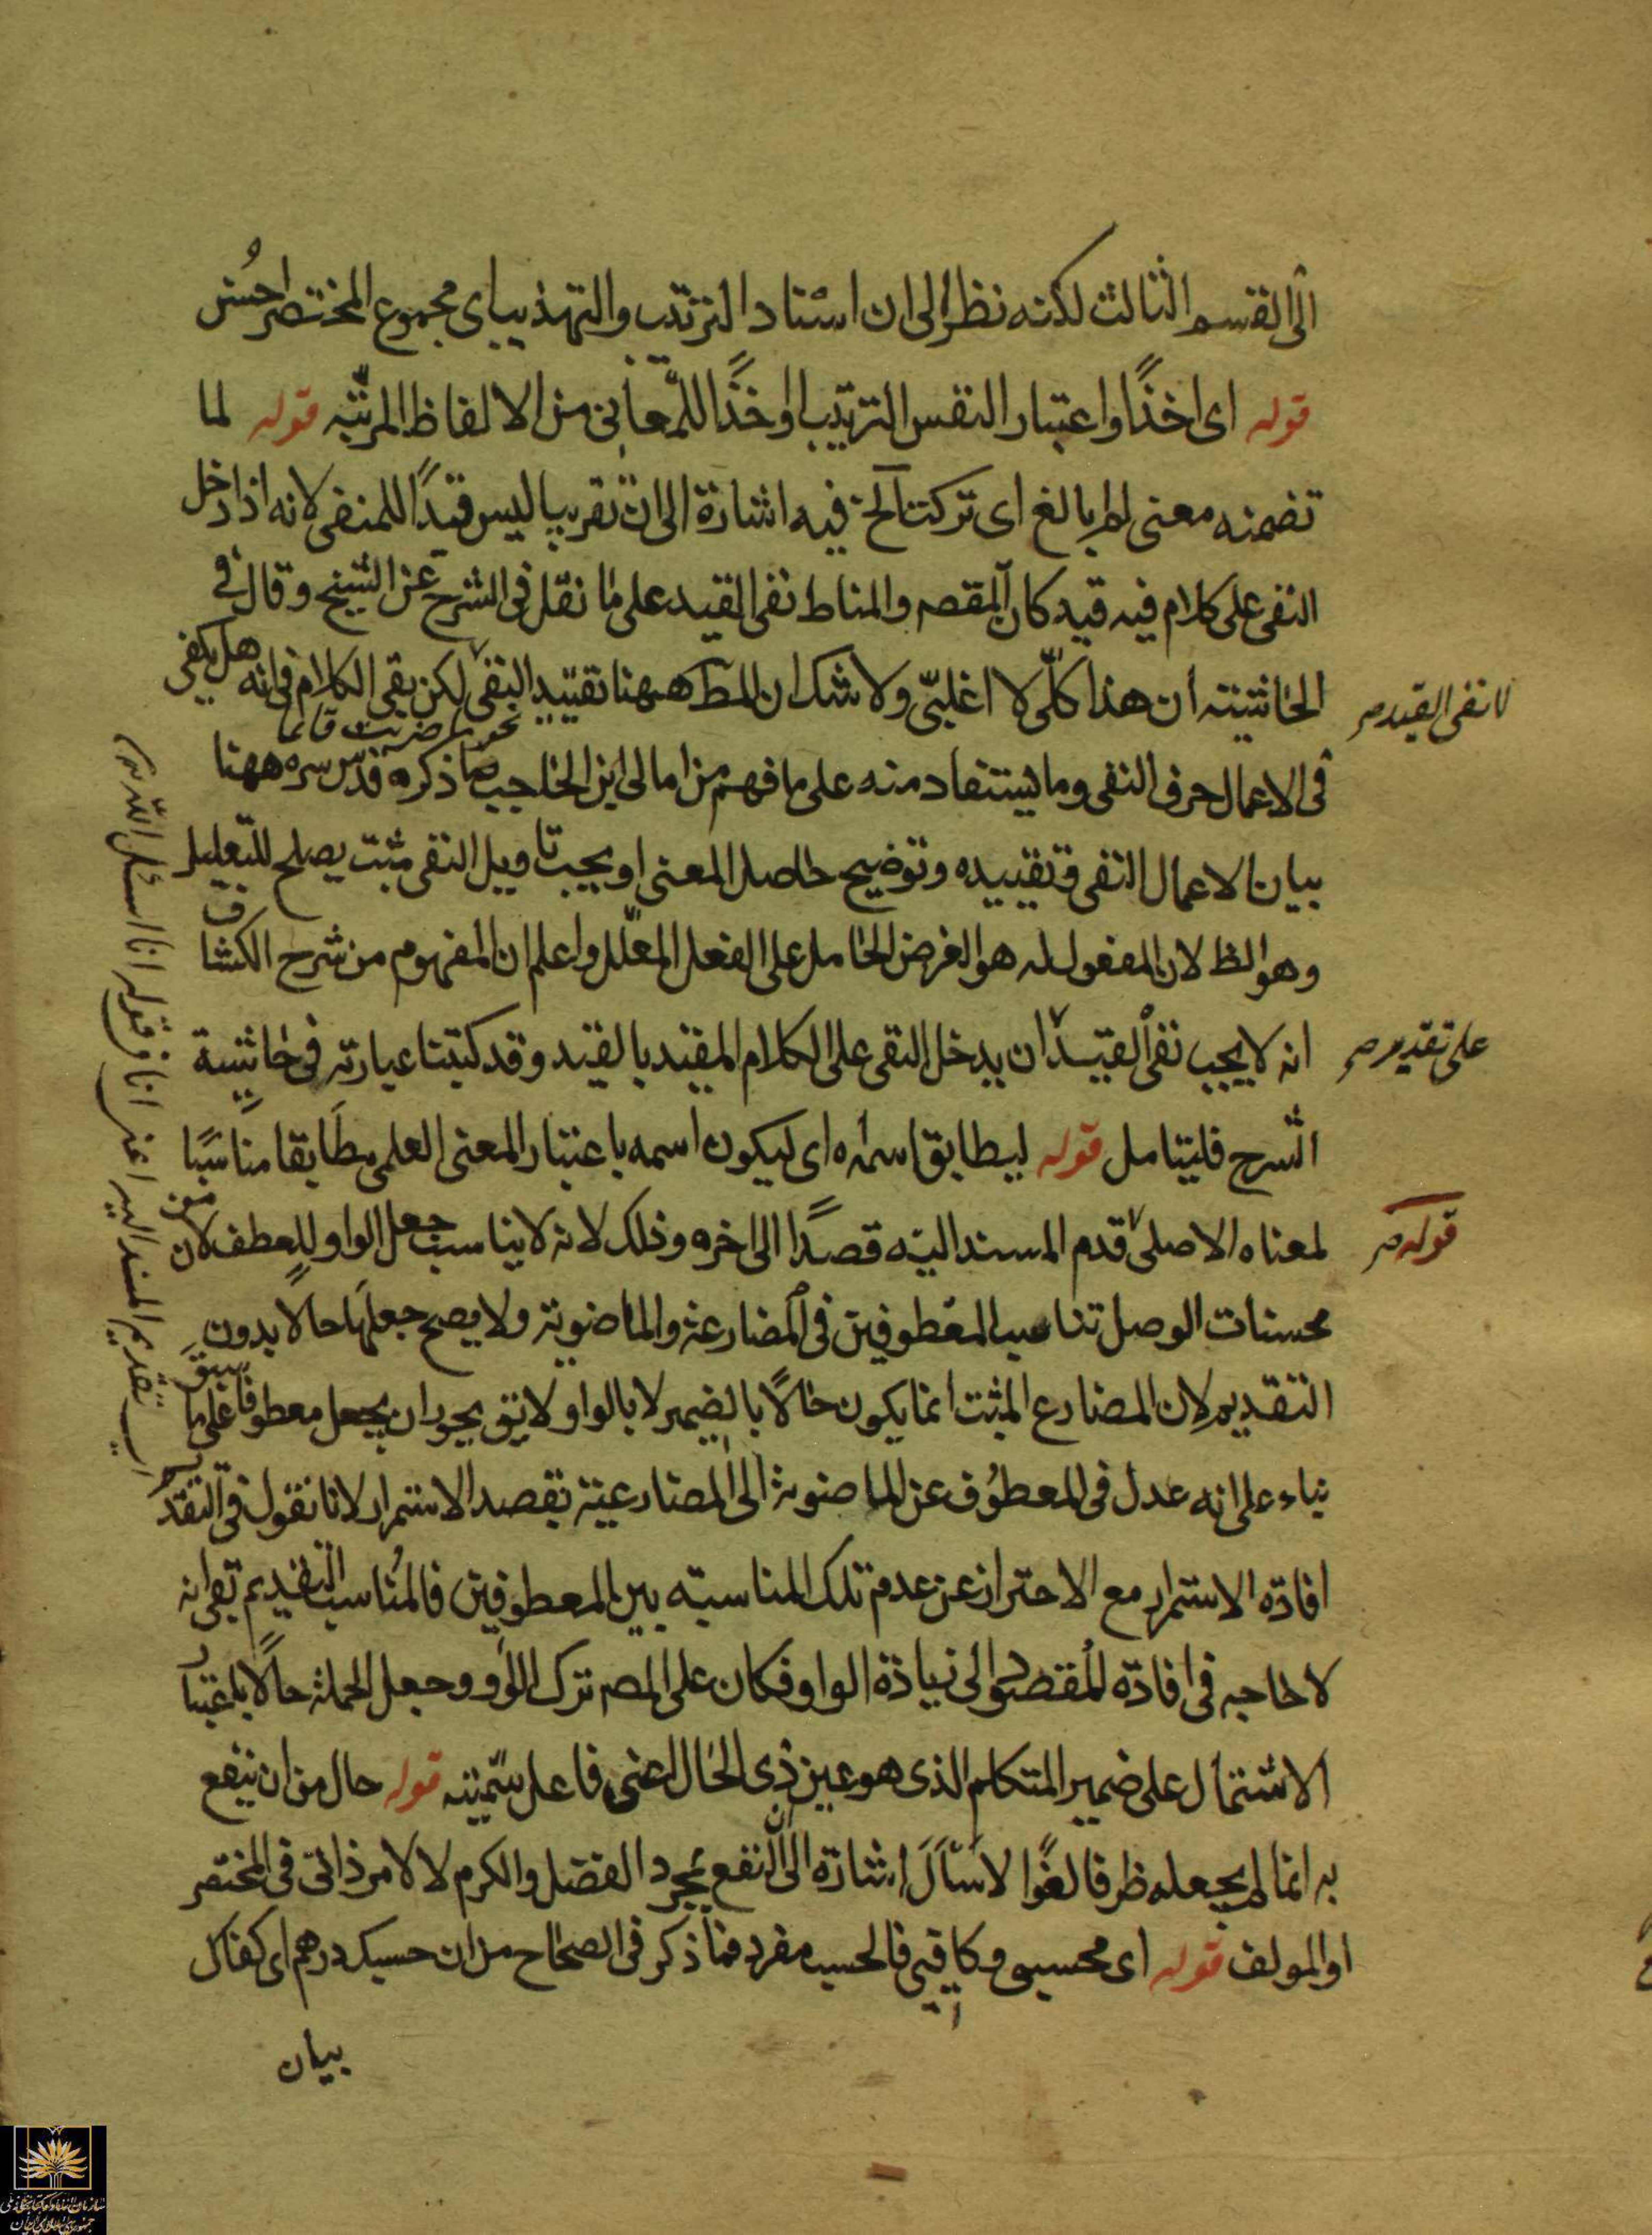 الى القسم الثالث لكنه نظر الى ان اسناد الترتيب والتهذيب اى مجموع المختصر احسن
قوله اى اخذا واعتبار النفس الترتيب او اخذا للمعانى من الالفاظ المرتبه قوله لما
تضمنه معنى لم ابالغ اى تركت آلخ فيه اشارة الى ان تقريبا ليس قيدا للمنفى لانه اذا دخل
النفى على كلام فيه قيد كان المقصه والمناط نفى القيد على ما نقل فى الشرح عن الشيخ وقال فى
الحاشيته ان هذا كلى لا اغلبى ولا شك ان المط ههنا تقييد النفى لكن بقى الكلام فى انه هل يكفى
لا نفى القيد صر
نحو ما ضربت قائما
فى الاعمال حرف النفى وما يستفاد منه على ما فهم من امالى ابن الحاجب مما ذكره قدس سره ههنا
بيان الاعمال النفى وتقييده وتوضيح حاصل المعنى او يجب تاويل النفى مثبت يصلح للتعليل
وهو الظ لان المفعول له هو الغرض الحامل على الفعل المعلل واعلم ان المفهوم من شرح الكشاف
انه لا يجب نفى القيد ان يدخل النفى على الكلام المقيد بالقيد وقد كتبنا عبارته فى حاشية
على تقدير صر
الشرح فليتامل قوله ليطابق اسمه اى ليكون اسمه باعتبار المعنى العلمى مطابقا مناسبا
لمعناه الاصلى قدم المسند اليه قصدا الى اخره وذلك لانه لا يناسب جعل الواو للعطف لان من
قوله صر
محسنات الوصل تناسب المعطوفين فى المضارعة والماضوية ولا يصح جعلها حالا بدون
التقديم لان المضارع المثبت انما يكون حالا بالضمير لا بالواو ولا يق يجوز ان يجعل معطوفا على ما سبق
بناء على انه عدل فى المعطوف عن الماضوية الى المضارعية بقصد الاستمرار لانا نقول فى التقديم
افادة الاستمرار مع الاحتراز عن عدم تلك المناسبته بين المعطوفين فالمناسب التقديم بقى انه
لا حاجه فى افادة المقصود الى زيادة الواو فكان على المصه ترك الواو وجعل الجملة حالا باعتبار
الاشتمال على ضمير المتكلم الذى هو عين ذى الحال اعنى فاعل سميته قوله حال من ان ينفع
به انما لم يجعله ظرفا لغوا لاسال اشارة الى ان النفع بمجرد الفضل والكرم لا لامر ذاتى فى المختصر
او المولف قوله اى محسبى وكافيى فالحسب مفرد فما ذكر فى الصحاح من ان حسبك درهم اى كفاك
بيان
اى تقديم المسند اليه اعنى انا فى قوله انا اسئل الله